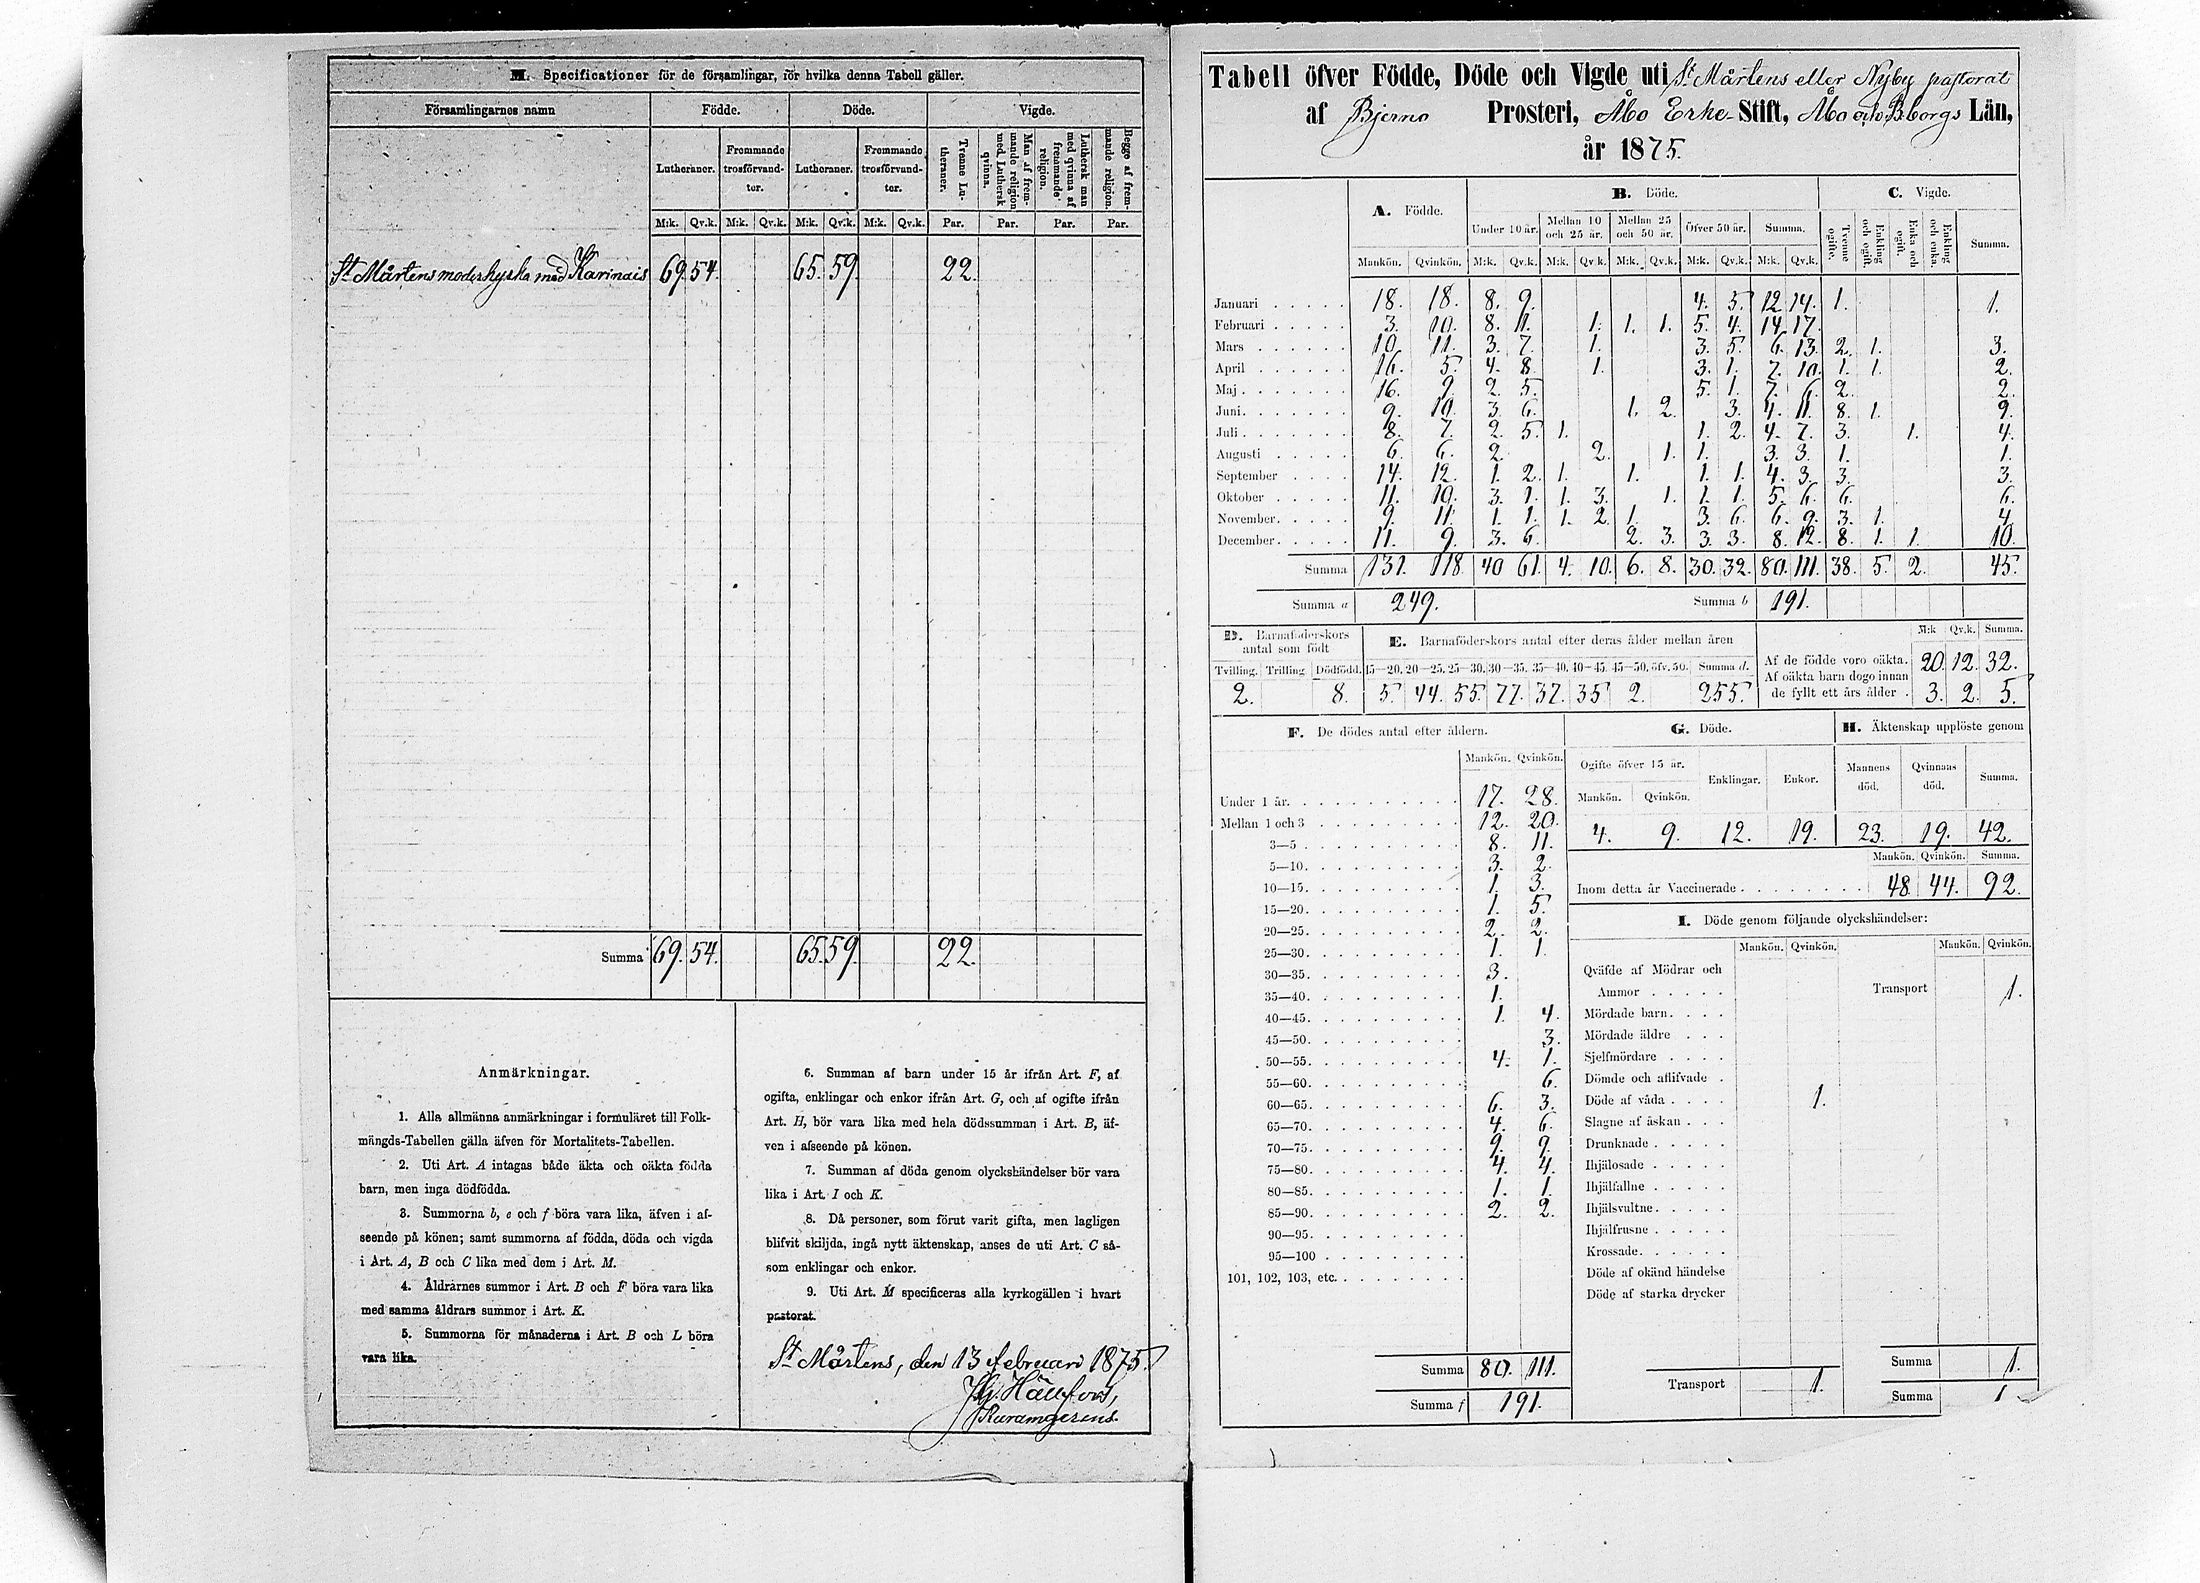 M. Specificationer för de församlingar, för hvilka denna Tabell gäller.
Församlingarnes namn Födde. Döde. Vigde.
Lutheraner. Fremmande trosförvandter. Lutheraner. Fremmande trosförvandter. Tvenne Lutheraner. Man af fremmande religion med Luthersk qvinna. Luthersk man med qvinna af fremmande religion. Begge af fremmande religion.
M:k. Qv.k. M:k. Qv.k. M:k. Qv.k. M:k. Qv.k. Par. Par. Par. Par.
St Mårtens moderkyrka med Karinais 69. 54. 65. 59. 22.
Summa 69. 54. 65. 59. 22.
Anmärkningar.
1. Alla allmänna anmärkningar i formuläret till Folk-
mängds-Tabellen gälla äfven för Mortalitets-Tabellen.
2. Uti Art. A intagas både äkta och oäkta födda
barn, men inga dödfödda.
3. Summorna b, e och f böra vara lika, äfven i af-
seende på könen; samt summorna af födda, döda och vigda
i Art. A, B och C lika med dem i Art. M.
4. Åldrarnes summor i Art. B och F böra vara lika
med samma åldrars summor i Art. K.
5. Summorna för månaderna i Art. B och L böra
vara lika.
6. Summan af barn under 15 år ifrån Art. F, af
ogifta, enklingar och enkor ifrån Art. G, och af ogifte ifrån
Art. H, bör vara lika med hela dödssumman i Art. B, äf-
ven i afseende på könen.
7. Summan af döda genom olyckshändelser bör vara
lika i Art. I och K.
8. Då personer, som förut varit gifta, men lagligen
blifvit skiljda, ingå nytt äktenskap, anses de uti Art. C så-
som enklingar och enkor.
9. Uti Art. M specificeras alla kyrkogällen i hvart
pastorat.
St Mårtens, den 13 februari 1875.
Tabell öfver Födde, Döde och Vigde uti St Mårtens eller Nyby pastorat
af Bjerno Prosteri, Åbo Erke- Stift, Åbo och B:borgs Län,
år 1875.
A. Födde. B. Döde. C. Vigde.
Under 10 år. Mellan 10 och 25 år. Mellan 25 och 50 år. Öfver 50 år. Summa. Tvenne ogifte. Enkling och ogift. Enka och ogift. Enkling och enka. Summa.
Mankön. Qvinkön. M:k. Qv.k. M:k. Qv.k. M:k. Qv.k. M:k. Qv.k. M:k. Qv.k.
Januari 18. 18. 8. 9. 4. 5. 12. 14. 1. 1.
Februari 3. 10. 8. 11. 1. 1. 1. 5. 4. 14. 17.
Mars 10. 11. 3. 7. 1. 3. 5. 6. 13. 2. 1. 3.
April 16. 5. 4. 8. 1. 3. 1. 7. 10. 1. 1. 2.
Maj 16. 9. 2. 5. 5. 1. 7. 6. 2. 2.
Juni 9. 10. 3. 6. 1. 2. 3. 4. 11. 8. 1. 9.
Juli 8. 7. 2. 5. 1. 1. 2. 4. 7. 3. 1. 4.
Augusti 6. 6. 2. 2. 1. 1. 3. 3. 1. 1.
September 14. 12. 1. 2. 1. 1. 1. 1. 4. 3. 3. 3.
Oktober 11. 10. 3. 1. 1. 3. 1. 1. 1. 5. 6. 6. 6.
November 9. 11. 1. 1. 1. 2. 1. 3. 6. 6. 9. 3. 1. 4
December 11. 9. 3. 6. 2. 3. 3. 3. 8. 12. 8. 1. 1. 10.
Summa 131. 118 40 61. 4. 10. 6. 8. 30. 32. 80. 111. 38. 5. 2. 45.
Summa a 249. Summa b 191.
D. Barnaföderskors antal som född E. Barnaföderskors antal efter deras ålder mellan åren M:k Qv.k. Summa.
Tvilling. Trilling Dödfödd. 15—20. 20—25. 25—30. 30—35. 35—40. 40—45. 45—50. öfv. 50. Summa d.
2. 8. 5. 44. 55. 77. 37. 35. 2. 255.
Af de födde voro oäkta. 20. 12. 32.
Af oäkta barn dogo innan
de fyllt ett års ålder 3. 2. 5.
F. De dödes antal efter åldern.
Mankön. Qvinkön.
Under 1 år. 17. 28.
Mellan 1 och 3 12. 20.
3—5 8. 11.
5—10. 3. 2.
10—15. 1. 3.
15—20. 1. 5.
20—25. 2. 2.
25—30. 1. 1.
30—35. 3.
35—40. 1.
40—45. 1. 4.
45—50. 3.
50—55. 4. 1.
55—60. 6.
60—65. 6. 3.
65—70. 4. 6.
70—75. 9. 9.
75—80. 4. 4.
80—85. 1. 1.
85—90. 2. 2.
90—95.
95—100
101, 102, 103, etc.
Summa 80. 111.
Summa f 191.
G. Döde. H. Äktenskap upplöste genom
Ogifte öfver 15 år. Enklingar. Enkor. Mannens död. Qvinnans död. Summa.
Mankön. Qvinkön.
4. 9. 12. 19. 23. 19. 42.
Mankön. Qvinkön. Summa.
Inom detta år Vaccinerade 48. 44. 92.
I. Döde genom följande olyckshändelser:
Mankön. Qvinkön. Mankön. Qvinkön.
Qväfde af Mödrar och
Ammor Transport 1.
Mördade barn.
Mördade äldre
Sjelfmördare
Dömde och aflifvade
Döde af våda 1.
Slagne af åskan
Drunknade
Ihjälosade
Ihjälfallne
Ihjälsvultne.
Ihjälfrusne
Krossade.
Döde af okänd händelse
Döde af starka drycker
Summa 1.
Transport 1.
Summa 1